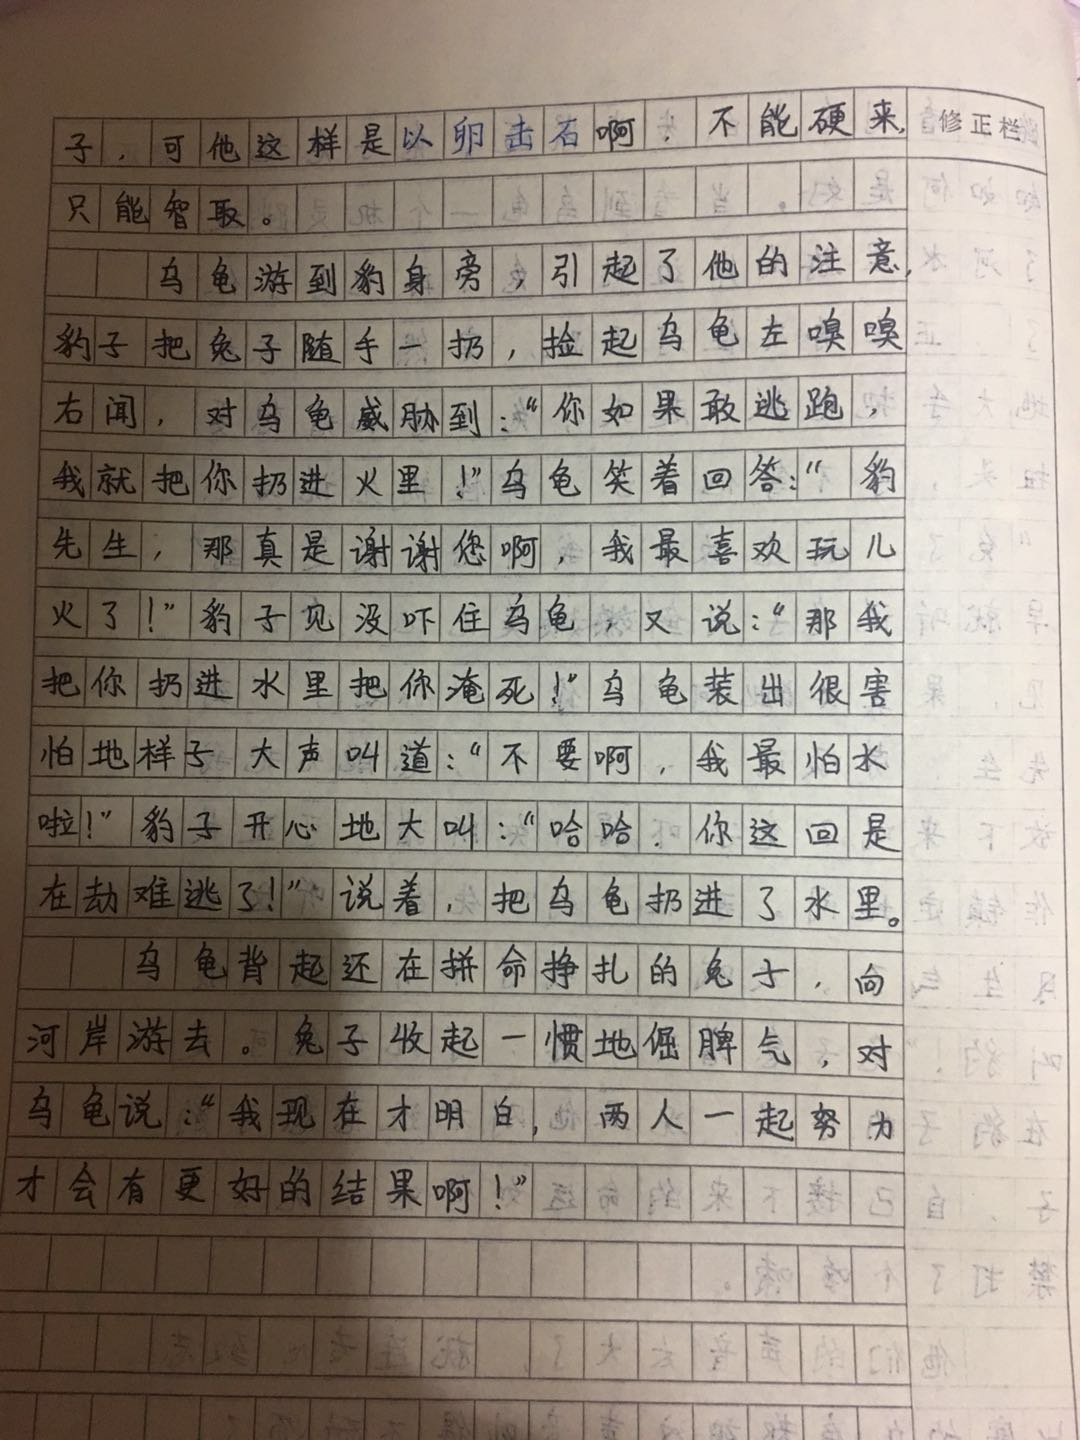 子，可他这样是以卵击石啊，不能硬来，
修正栏
只能智取。
乌龟游到豹身旁，引起了他的注意，
豹子把兔子随手一扔，捡起乌龟左嗅嗅
右闻，对乌龟威胁到：“你如果敢逃跑，
我就把你扔进火里！”乌龟笑着回答：“豹
先生，那真是谢谢您啊，我最喜欢玩儿
火了！”豹子见没吓住乌龟，又说：“那我
把你扔进水里把你淹死！”乌龟装出很害
怕地样子大声叫道：“不要啊，我最怕水
啦！”豹子开心地大叫：“哈哈！你这回是
在劫难逃了！”说着，把乌龟扔进了水里。
乌龟背起还在拼命挣扎的兔子，向
河岸游去。兔子收起一惯地倔脾气，对
乌龟说：“我现在才明白，两人一起努力
才会有更好的结果啊！”